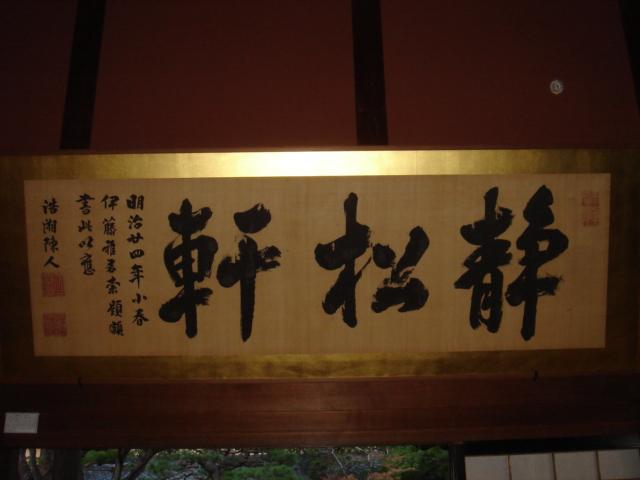 静松軒
明治廿四年小春
伊藤雅君索顔額
書此以應
浩湘陳人